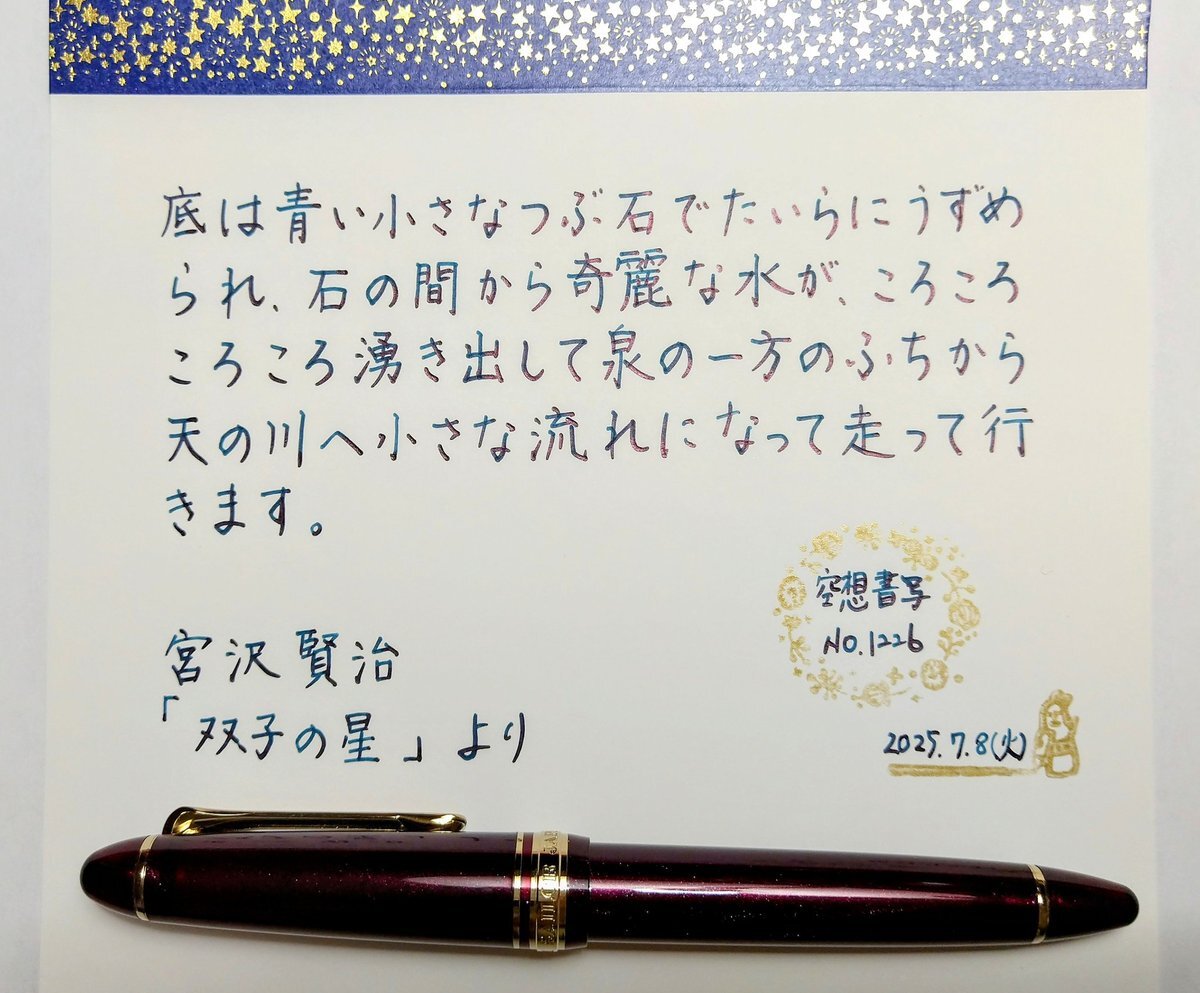 底は青い小さなつぶ石でたいらにうずめ
られ、石の間から奇麗な水が、ころころ
ころころ湧き出して泉の一方のふちから
天の川へ小さな流れになって走って行
きます。
宮沢賢治
「双子の星」より
空想書写
NO.1226
2025.7.8(火)